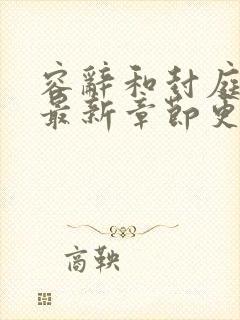 容辞和封庭
最新章节更
商鞅